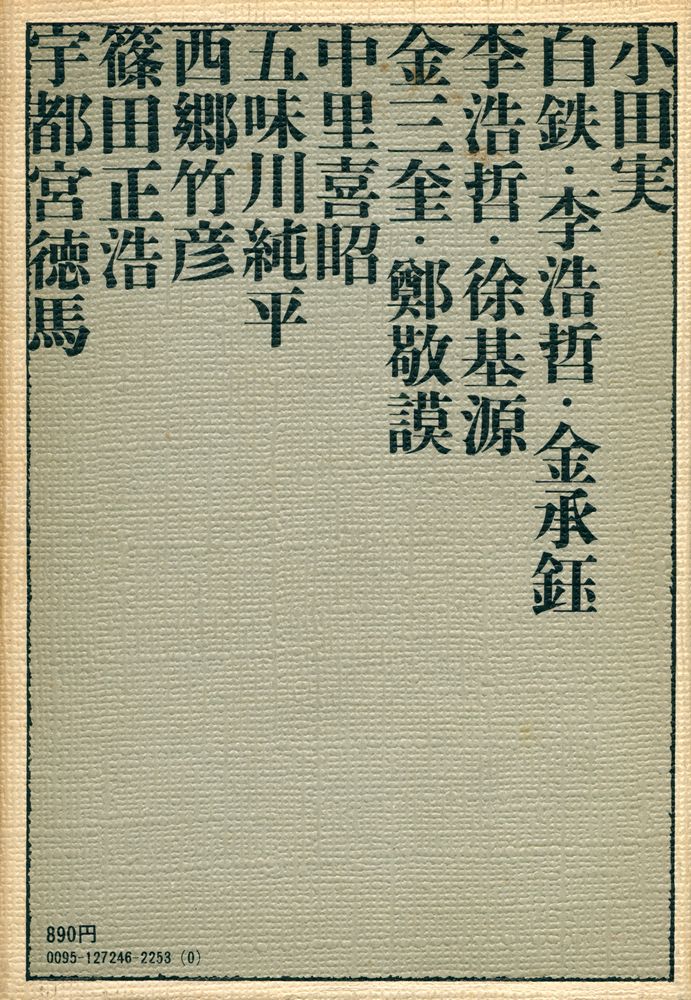 小田実
白鉄・李浩哲・金承鈺
李浩哲・徐基源
金三奎・鄭敬謨
中里喜昭
五味川純平
西郷竹彦
篠田正浩
宇都宮徳馬
890円
0095-127246-2253 (0)